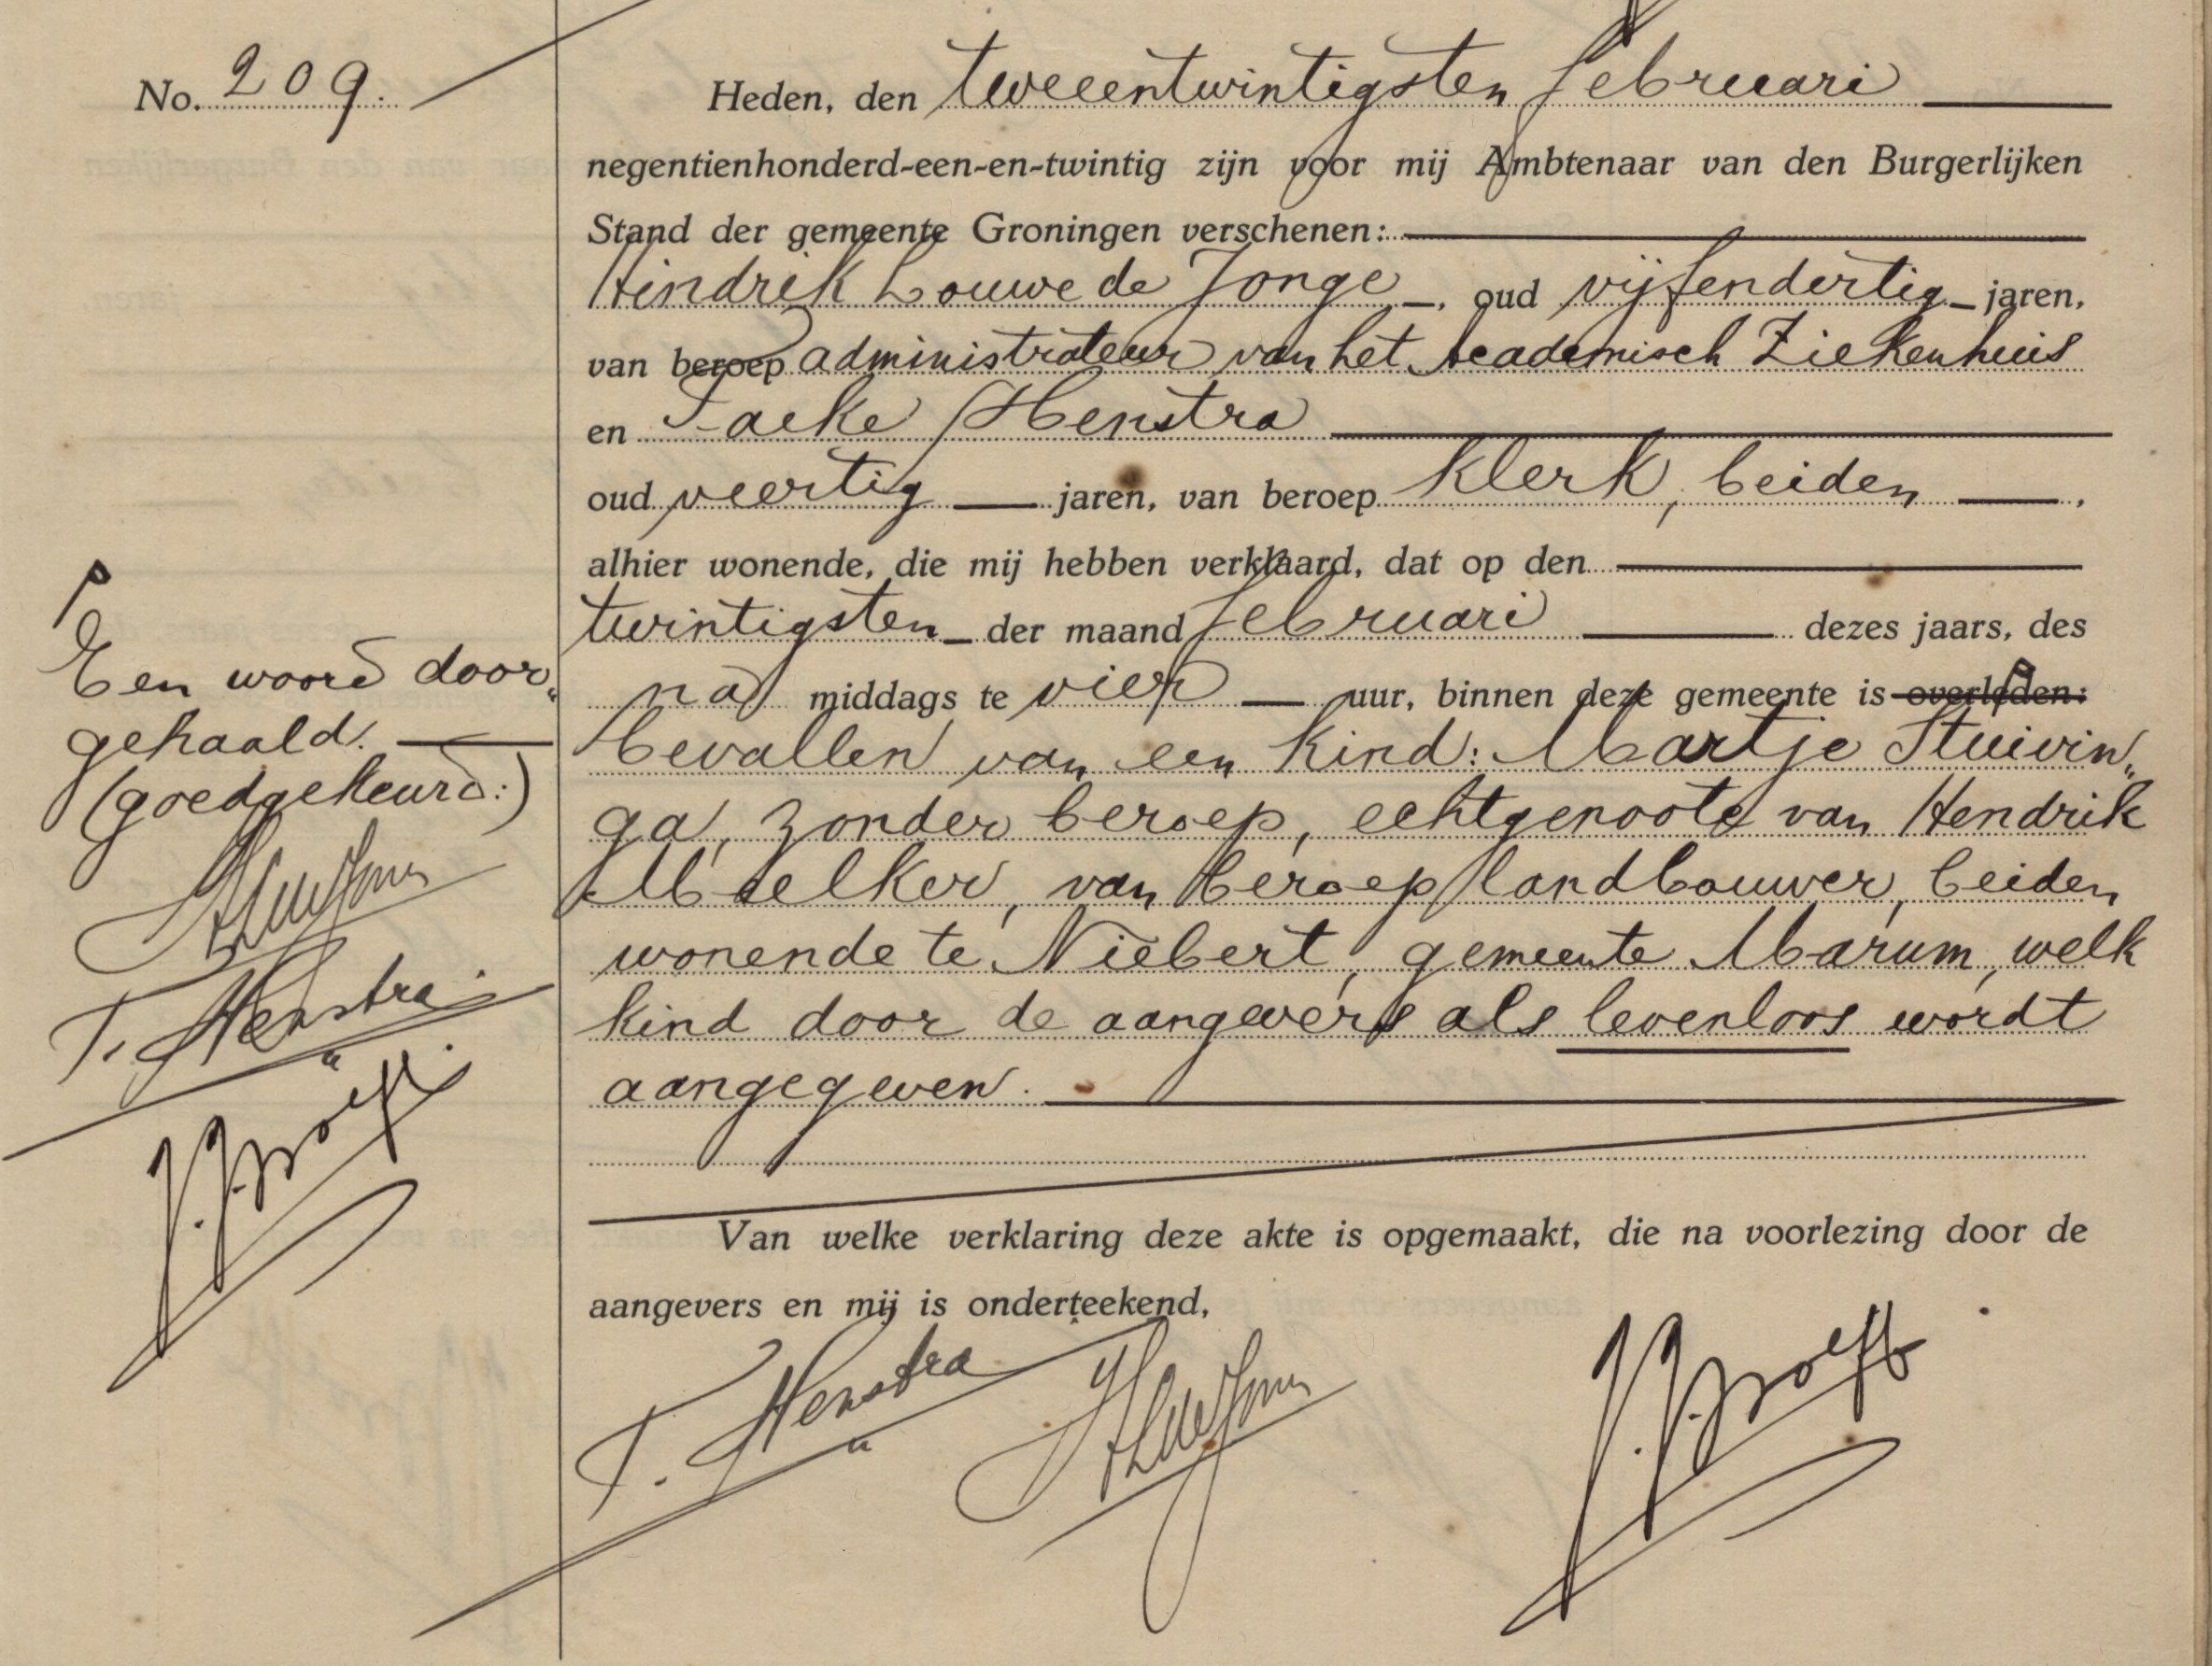 No. 209.
Heden, den tweeentwintigsten februari
negentienhonderd-een-en-twintig zijn voor mij Ambtenaar van den Burgerlijken
Stand der gemeente Groningen verschenen:
Hindrik Louwe de Jonge, oud vijfendertig jaren,
van beroep administrateur van het Academisch Ziekenhuis
en Taeke Henstra
oud veertig jaren, van beroep klerk, beiden,
alhier wonende, die mij hebben verklaard, dat op den
twintigsten der maand februari dezes jaars, des
na middags te vier uur, binnen deze gemeente is overleden:
bevallen van een kind: Martje Stuivin„
ga, zonder beroep, echtgenoote van Hendrik
Meelker, van beroep landbouwer, beiden
wonende te Niebert, gemeente Marum, welk
kind door de aangevers als levenloos wordt
aangegeven.
Van welke verklaring deze akte is opgemaakt, die na voorlezing door de
aangevers en mij is onderteekend,
T. Henstra HLdeJonge
Een woord door„
gehaald.
(goedgekeurd:)
HLdeJonge
T. Henstra